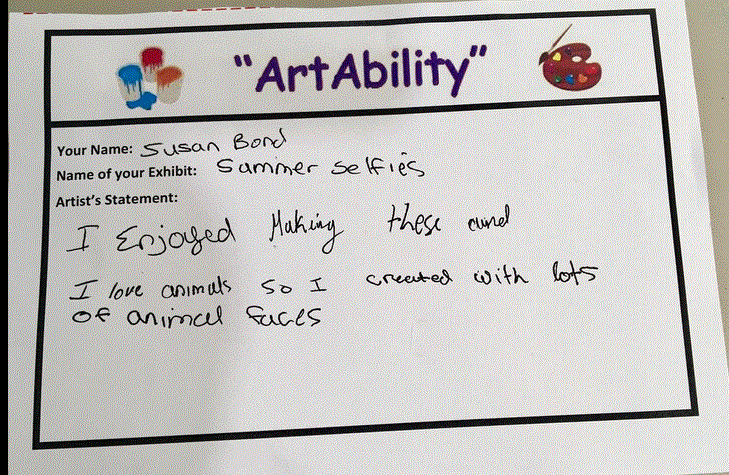 "ArtAbility"
Your Name: Susan Bond
Name of your Exhibit: Summer selfies
Artist's Statement:
I Enjoyed Making these and
I love animals so I created with lots
of animal faces